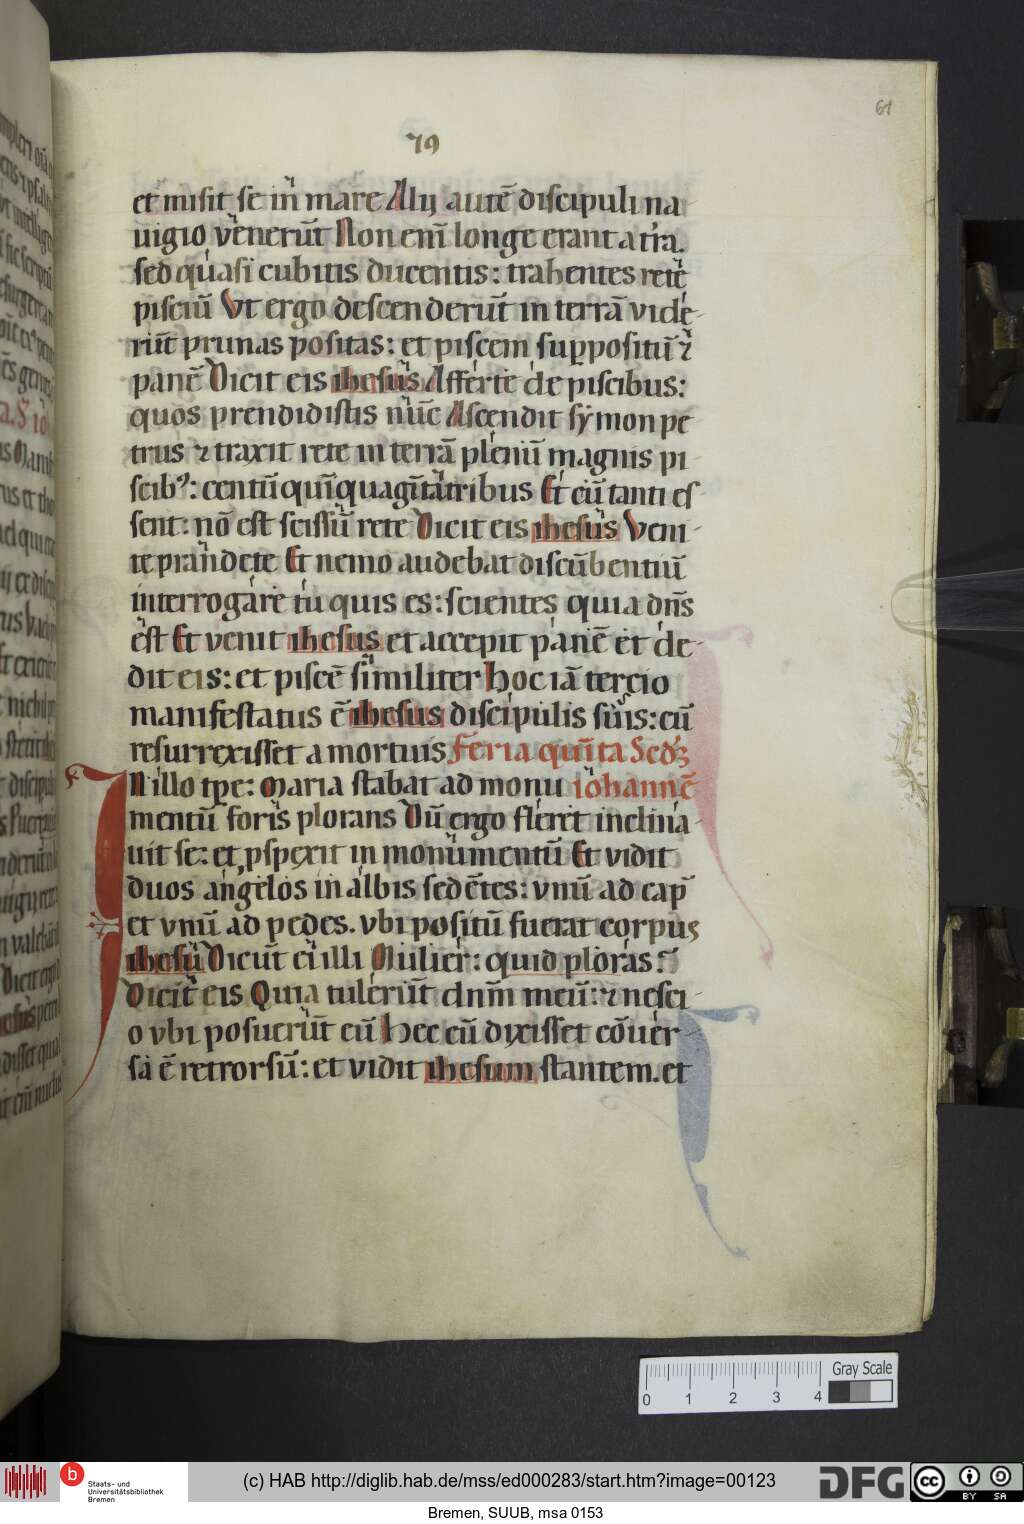 61
79
et misit se in mare Alij autē discipuli na
uigio venerūt Non enī longe erant a tr̄a.
sed quasi cubitis ducentis: trahentes retē
pisciū Vt ergo descenderūt in terrā vide
rūt prunas positas: et piscem suppositū ⁊
panē Dicit eis ihesus Afferte de piscibus:
quos prendidistis nūc Ascendit symon pe
trus ⁊ traxit rete in terrā plenū magnis pi
scibꝰ: centū quīquagīta tribus Et cū tanti eſ
sent: nō est scissū rete Dicit eis ihesus Veni
te prandete Et nemo audebat discūbentiū
interrogare tu quis es: scientes quia dn̄s
est Et venit ihesus et accepit panē et de
dit eis: et piscē similiter Hoc iā tercio
manifestatus ē ihesus discipulis suis: cū
resurrexisset a mortuis Feria quīta Scdꝫ
IN illo tp̄e: Maria stabat ad monu iohannē
mentū foris plorans Dū ergo fleret inclina
uit se: et ꝓspexit in monumentū Et vidit
duos angelos in albis sedētes: vnū ad cap̄
et vnū ad pedes. vbi positū fuerat corpus
ihesu Dicūt ei illi Mulier: quid ploras?
Dicit eis Quia tulerūt dnm̄ meū: ⁊ nesci
o vbi posuerūt eū Hec cū dixisset cōuer
sa ē retrorsū: et vidit ihesum stantem. et
0 1 2 3 4
Gray Scale
b
Staats- und
Universitätsbibliothek
Bremen
(c) HAB http://diglib.hab.de/mss/ed000283/start.htm?image=00123
DFG
cc
BY SA
Bremen, SUUB, msa 0153